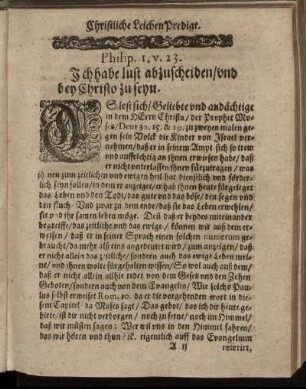 Christliche Leichen Predigt.
Philip. 1. v. 23.
Ich habe lust abzuscheiden/vnd
bey Christo zu seyn.
ES lest sich/ Geliebte vnd andächtige
in dem HErrn Christo/ der Prophet Mo-
sis/ Deut 30. 15. & 19. zu zweyen malen ge-
gen sein Volck die Kinder von Israel ver-
nehmen/ daß er in seinem Ampt sich so trew
vnd auffrichtig an ihnen erwiesen habe/ daß
er nicht vnterlassen ihnen fürzutragen/ was
jhnen zum zeitlichen vnd ewigen heil hat dienstlich vnd
seyn sollen/ in dem er anzeiget/ er hab ihnen heute fürgeleget
das Leben vnd den Todt/ das gute vnd das böse/ den segen vnd
den fluch. Vnd zwar zu dem ende/ daß sie das Leben erwehlen/
sie vnd ihr samen leben möge. Deñ daß er beydes mit einander
begreiffe/ das zeitliche vnd das ewige/ wil er nur damit auß wei-
sen/ weil er in seiner Sprach einen solchen numerum ge-
braucht/ da mehr als eins angedeutet wird/ anzuzeigen/ daß
er nicht allein das zeitliche/ sondern auch das ewige Leben mei-
ne/ vnd ihnen wolte fürgehalten wissen/ So wol auch auß dem/
daß er nicht allein allhier redet von dem Gesetz vnd den Zehen
Geboten/ sondern auch von dem Evangelio/ Wie solchs Pau-
lus selbst erweiset Rom. 10. da er die vorgehenden wort in die-
sem Capitel/ da Moses sagt/ Das gebot/ das ich dir heute ge-
biete/ ist dir nicht verborgen/ noch zu ferne/ noch im Himmel/
daß wir müssen sagen: Wer wil vns in den Himmel fahren/
das wir hören vnd thun? ꝛc. eigentlich auff das Evangelium
A ij referirt,